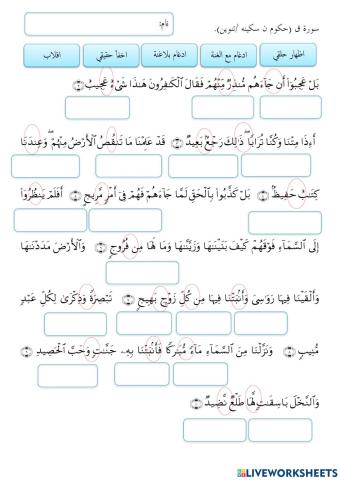 نام:
سورة ق (حكوم ن سكينه /تنوين).
اظهار حلقي ادغام مع الغنة ادغام بلاغنة اخفأ حقيقي اقلاب
بَلْ عَجِبُوٓا۟ أَن جَآءَهُم مُّنذِرٌ مِّنْهُمْ فَقَالَ ٱلْكَـٰفِرُونَ هَـٰذَا شَىْءٌ عَجِيبٌ ۝
أَءِذَا مِتْنَا وَكُنَّا تُرَابًا ۖ ذَٰلِكَ رَجْعٌۢ بَعِيدٌ ۝ قَدْ عَلِمْنَا مَا تَنقُصُ ٱلْأَرْضُ مِنْهُمْ ۖ وَعِندَنَا
كِتَـٰبٌ حَفِيظٌۢ ۝ بَلْ كَذَّبُوا۟ بِٱلْحَقِّ لَمَّا جَآءَهُمْ فَهُمْ فِىٓ أَمْرٍ مَّرِيجٍ ۝ أَفَلَمْ يَنظُرُوٓا۟
إِلَى ٱلسَّمَآءِ فَوْقَهُمْ كَيْفَ بَنَيْنَـٰهَا وَزَيَّنَّـٰهَا وَمَا لَهَا مِن فُرُوجٍ ۝ وَٱلْأَرْضَ مَدَدْنَـٰهَا
وَأَلْقَيْنَا فِيهَا رَوَٰسِىَ وَأَنۢبَتْنَا فِيهَا مِن كُلِّ زَوْجٍۭ بَهِيجٍ ۝ تَبْصِرَةً وَذِكْرَىٰ لِكُلِّ عَبْدٍ
مُّنِيبٍ ۝ وَنَزَّلْنَا مِنَ ٱلسَّمَآءِ مَآءً مُّبَـٰرَكًا فَأَنۢبَتْنَا بِهِۦ جَنَّـٰتٍ وَحَبَّ ٱلْحَصِيدِ ۝
وَٱلنَّخْلَ بَاسِقَـٰتٍ لَّهَا طَلْعٌ نَّضِيدٌ ۝
LIVEWORKSHEETS